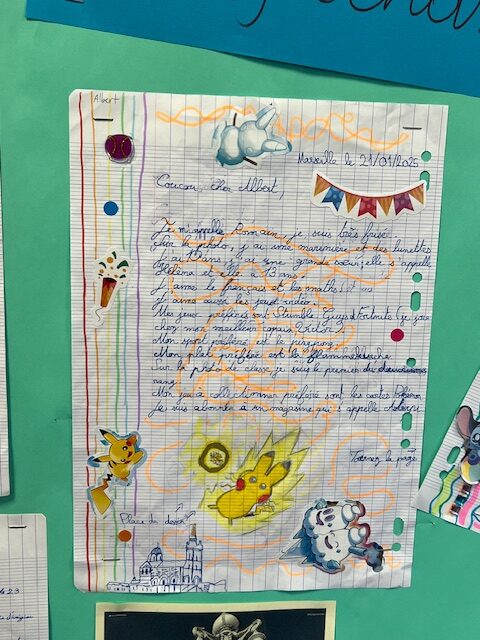 Albert
Marseille le 21/01/2025
Coucou, cher Albert,
Je m'appelle Romain, je suis très frisée.
Sur la photo, j'ai une marinière et des lunettes
J'ai ans, j'ai une grande sœur, elle s'appelle
Héléna et elle a 13 ans.
J'aime le français et les maths
J'aime aussi les jeux vidéo.
Mes jeux préférés sont Stumble Guys et Fortnite (je joue
chez mon meilleur copain Victor)
Mon sport préféré est le ping pong.
Mon plat préféré est la flammekueche
Sur la photo de classe, je suis le premier du
rang.
Mon jeu à collectionner préféré sont les cartes Pokémon
Je suis abonnée à un magazine qui s'appelle
Tournez la page
Place du dessin